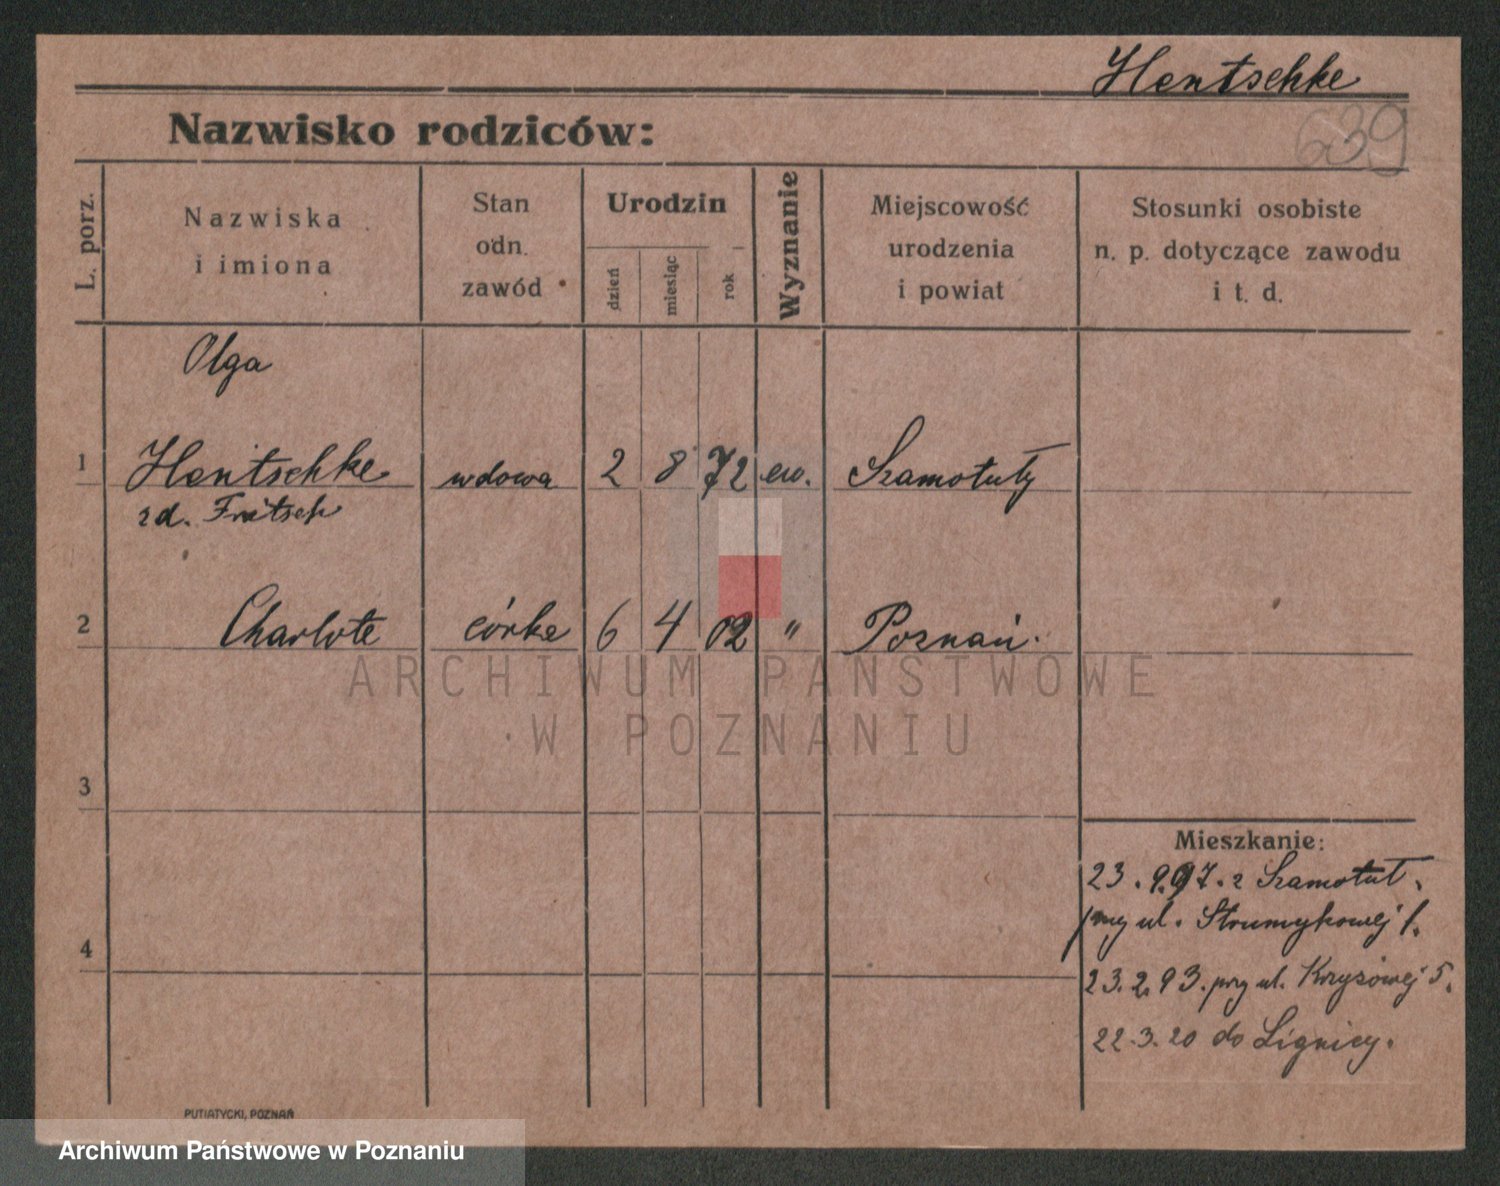 Hentschke
639
Nazwisko rodziców:
L. porz.
Nazwiska
i imiona
Stan
odn.
zawód
Urodzin
dzień
miesiąc
rok
Wyznanie
Miejscowość
urodzenia
i powiat
Stosunki osobiste
n. p. dotyczące zawodu
i t. d.
Olga
1 Hentschke wdowa 2 8 72 ew. Szamotuły
zd. Fritsch
2 Charlote córka 6 4 02 " Poznań.
ARCHIWUM PAŃSTWOWE
W POZNANIU
3
Mieszkanie:
23.9. z Szamotuł.
przy ul. Strumykowej 1.
4
23.2.93. przy ul. 5.
22.3.20 do Lignicy.
PUTIATYCKI, POZNAŃ
Archiwum Państwowe w Poznaniu